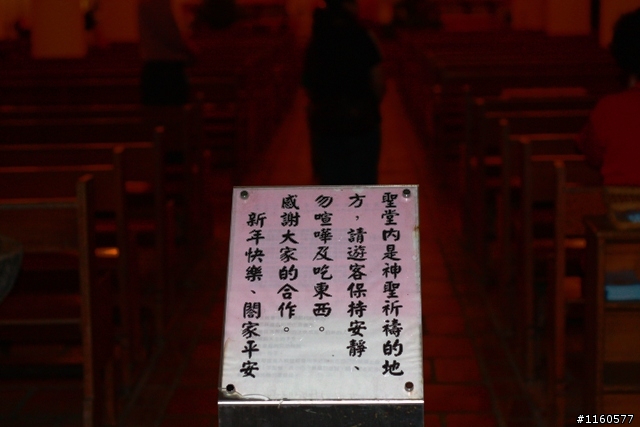 聖堂內是神聖祈禱的地
方，請遊客保持安靜、
勿喧嘩及吃東西。
感謝大家的合作。
新年快樂、閤家平安
#1160577